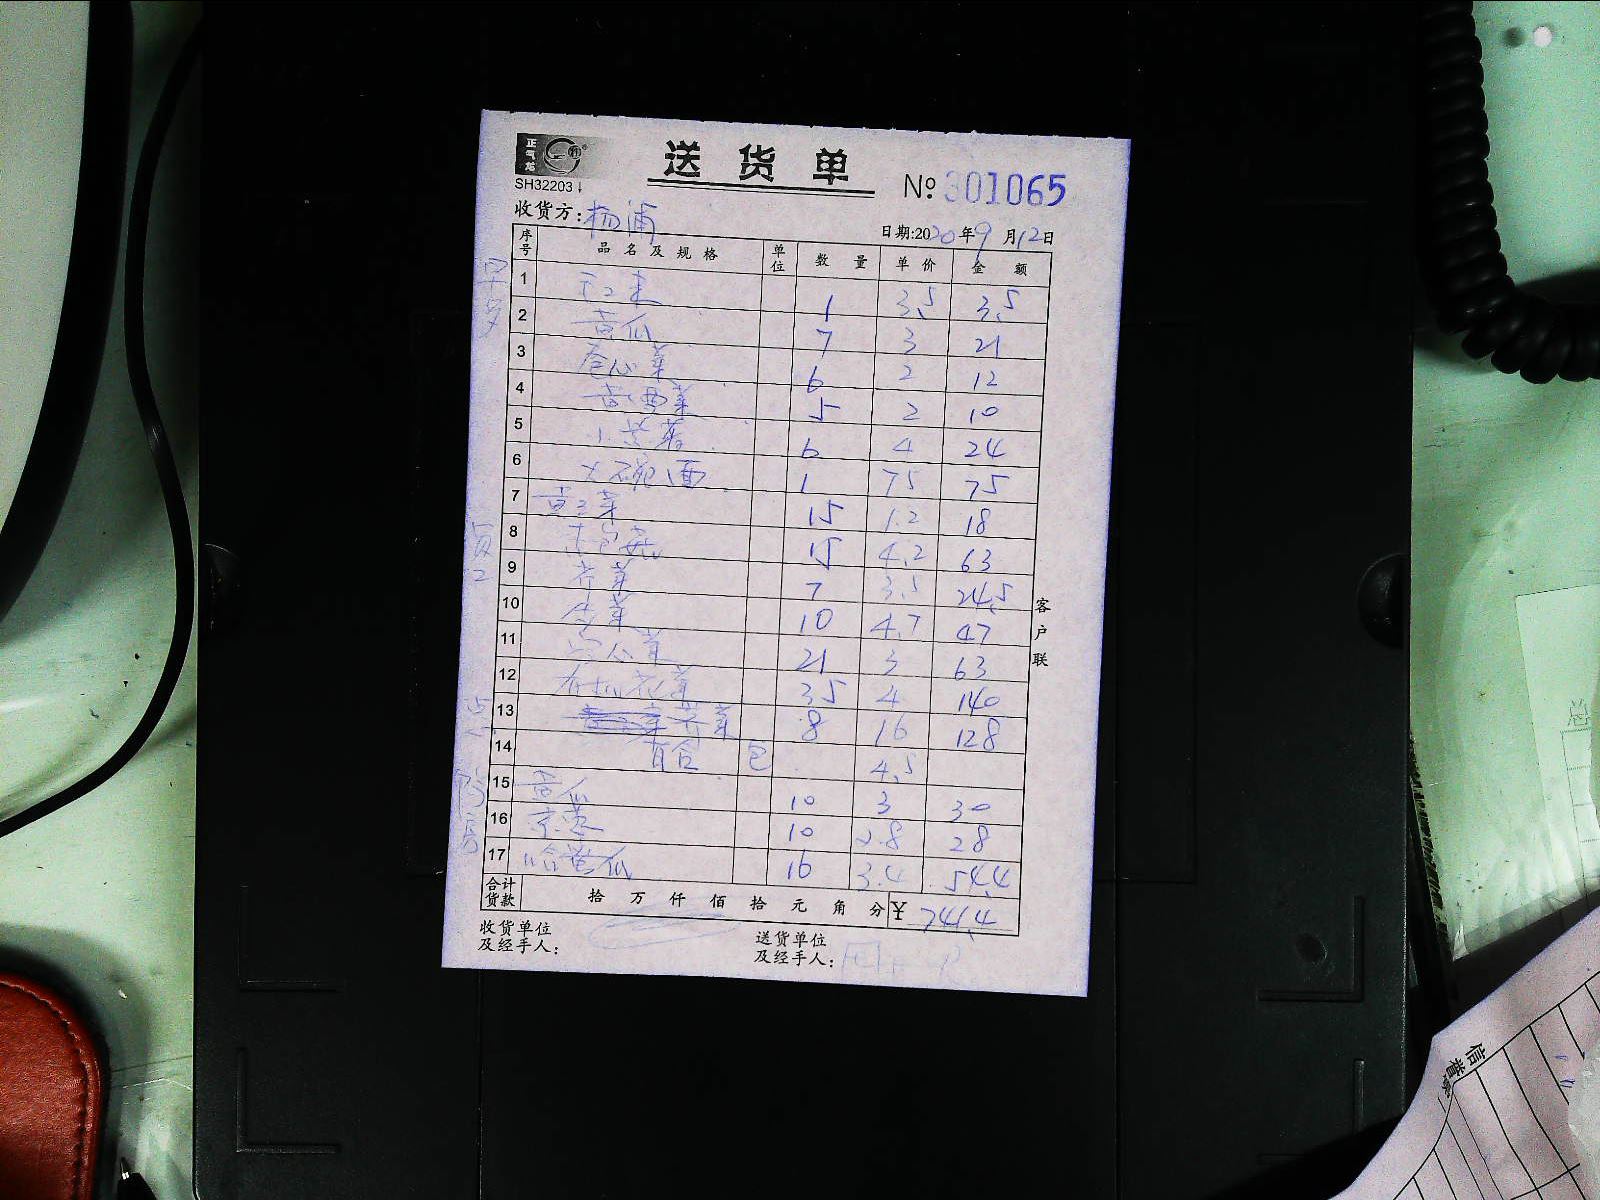 正气龙
SH32203
送 货 单
№ 301065
收货方: 杨浦
日期:2020年9月12日
序号 品名及规格 单位 数量 单价 金额
1 1 3.5 3.5
2 黄瓜 7 3 21
3 卷心菜 6 2 12
4 5 2 10
5 6 4 24
6 大碗面 1 75 75
7 15 1.2 18
8 15 4.2 63
9 芹菜 7 3.5 24.5
10 10 4.7 47
11 21 3 63
12 有机花菜 35 4 140
13 芥菜 8 16 128
14 百合 包 4.5
15 黄瓜 10 3 30
16 京葱 10 2.8 28
17 哈密瓜 16 3.4 54.4
合计货款 拾 万 仟 佰 拾 元 角 分 ¥ 741.4
收货单位及经手人:
送货单位及经手人:
客户联
早
信誉
总